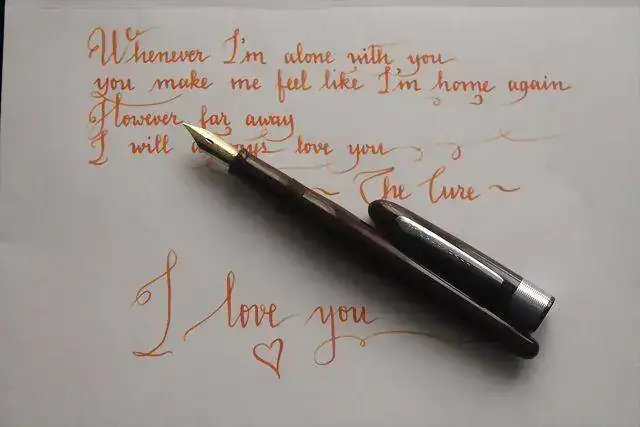 Whenever I'm alone with you
you make me feel like I'm home again
However far away
I will always love you
~ The Cure ~
I love you